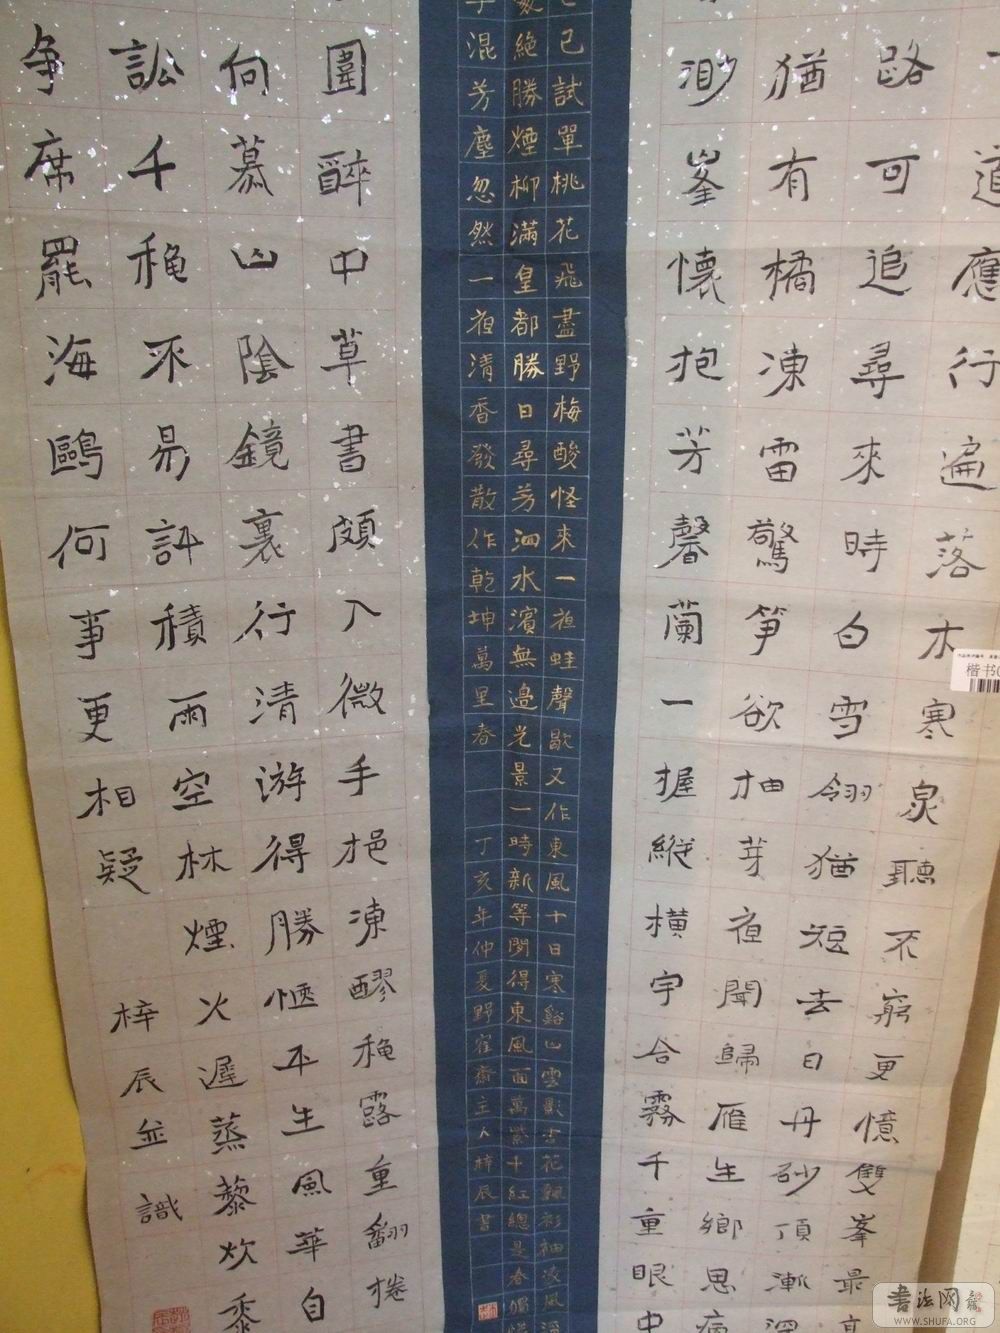 道應行遍落木寒泉聽不窮更憶雙峯最高
路可追尋來時白雪翎猶短去日丹砂頂漸深
猶有橘凍雷驚笋欲抽芽夜聞歸雁生鄉思病
渺峯懷抱芳馨蘭一握縱橫宇合霧千重眼中
已試單桃花飛盡野梅酸怪來一夜蛙聲歇又作東風十日寒谿上雲影杏花飄彩袖凌風
絕勝煙柳滿皇都勝日尋芳泗水濱無邊光景一時新等閑得東風面萬紫千紅總是春
混芳塵忽然一夜清香發散作乾坤萬里春
丁亥年仲夏野雀齋主人梓辰書
圍醉中草書頗入微手挹凍醪秾露重翻捲
向慕山陰鏡裏行清游得勝愜平生風華自
訟千秾不易評積雨空林煙火遲蒸藜炊黍
争席罷海鷗何事更相疑
梓辰並識
楷书
书法网
WWW.SHUFA.ORG